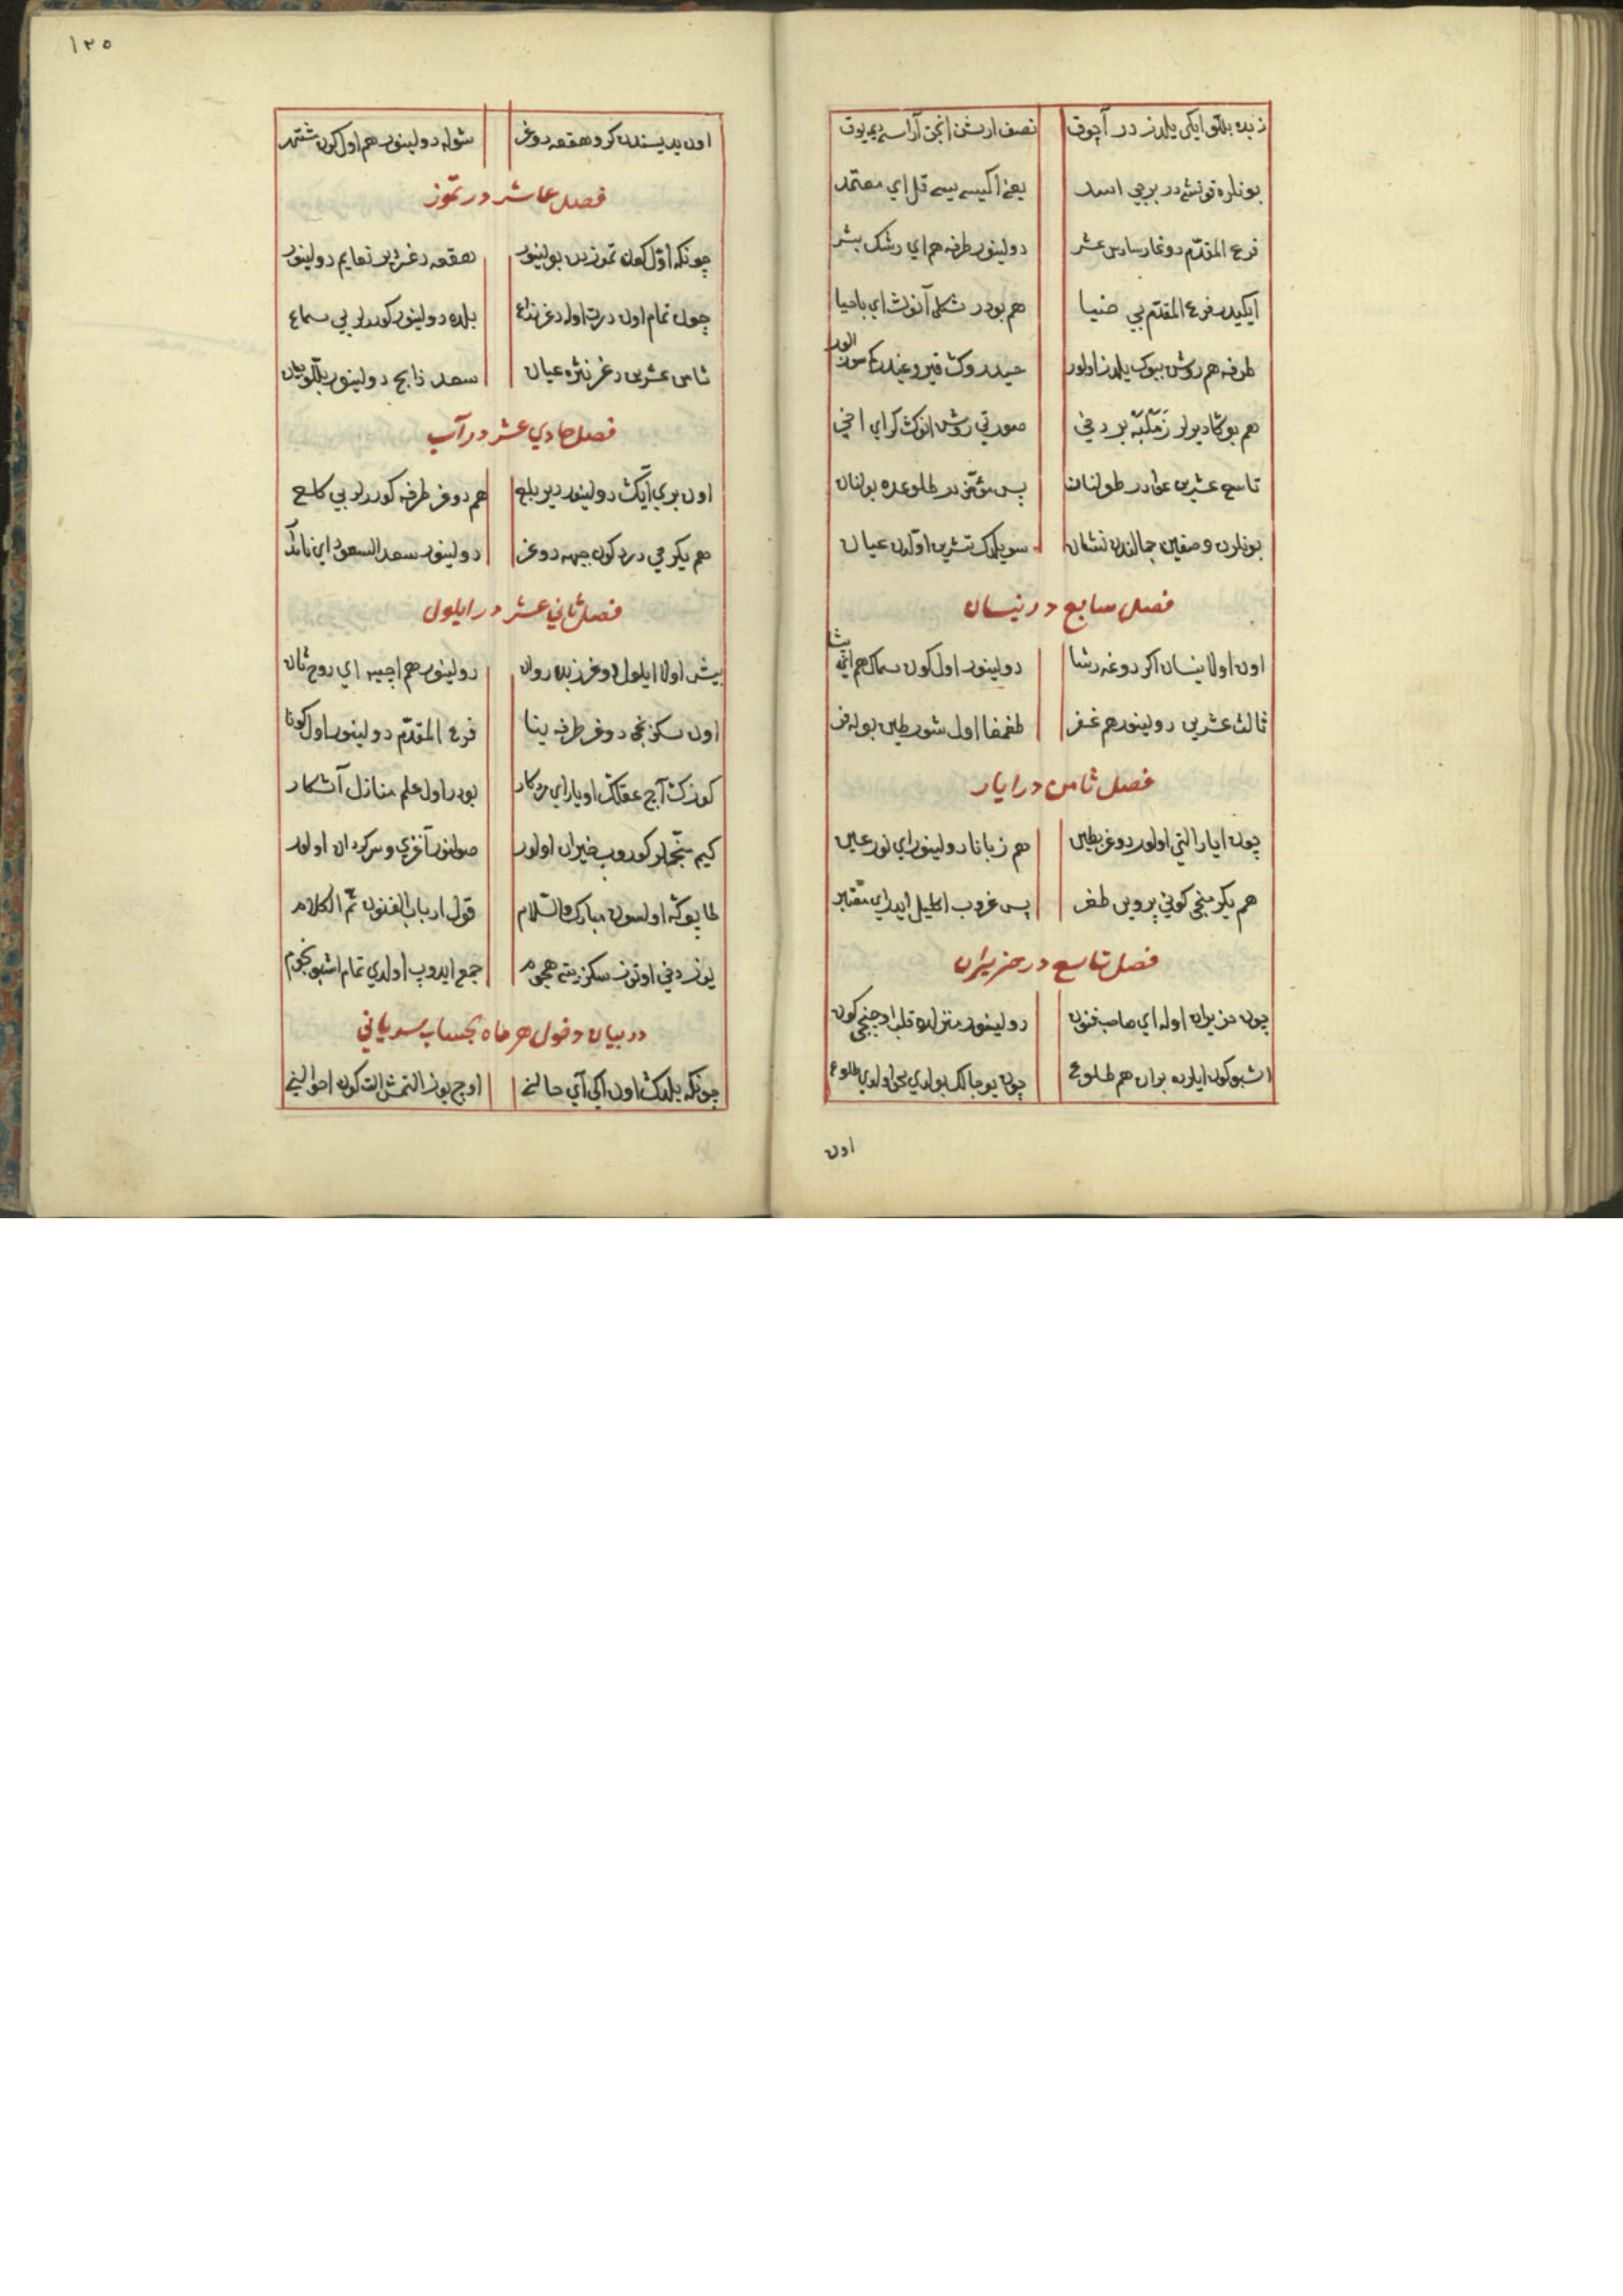 زبده بللو ایکی یلدز در آچوق نصف ارشن انجق آراسی دیمه یوق
بونلره قونشی در برجی اسد یعنی اکیسی قل ای معتمد
فرع المقدّم دوغار سادس عشر دولینور طرفه هم ای رشک بشر
ایکیدر فرع المقدّم بی ضیا هم بودر شکلی آنوڭ ای باحیا
طرفه هم روشن بیوک یلدز اولور
هم بوکا دیرلر بر دخی صورتی روشن انوڭ کر ای اخی
تاسع عشرین عوّا در طولنان پس مؤخّر در طلوعده بولنان
بونلرن وصفین جمالندن نشان سویلدک تشرین اوّلدن عیان
فصل سابع در نیسان
اون اولا نیسان اکر دوغه رشا دولینور اول کون سماک هم
ثالث عشرین دولینور هم غفر اول شورطین بوله فر
فصل ثامن در ایار
چون ایار التی اولور دوغر بطین هم زبانا دولینور ای نور عین
هم یکرمنجی کونی پروین طغر پس غروب اکلیل ایدر ای معتبر
فصل تاسع در حزیران
چون حزیران اوله ای صاحب فنون دولینور منزلده قلب اوچنجی کون
اشبو کون ایلرده بران هم طلوع چون بو حالک بولدی اولدی طلوع
اون
١٢٥
اون یدیسندن کرو هقعه دوغر شوله دولینور هم اول کون
فصل عاشر در تمّوز
چونکه اوّل کون تموزین بولینور هقعه دغر بر نعایم دولینور
چون تمام اون درت اوله دغر ذراع بلده دولینور کوررلر بی سماع
ثامن عشرین دغر نثره عیان سعد ذابح دولینور بللو بیان
فصل حادي عشر در آب
اون بری آیک دولینور دیر بلع هم دوغر طرفه کوررلر بی کلع
هم یکرمی درد کون جبهه دوغر دولینور سعد السعود ای
فصل ثاني عشر در ایلول
بیش اولا ایلول دوغر زبده روان دولینور هم اخبیه ای روح ثان
اون سکزنجی دوغر طرفه ینا فرع المقدّم دولینور اول کونا
کوزک آچ عقلک اویار ای مرد کار بودر اول علم منازل آشکار
کیم منجّملر کوروب حیران اولور صولنور آغزی و سرکردان اولور
طاپوکه اولسون مبارک والسّلام قول ارباب الفنون تمّ الکلام
یوز دخی اوتوز سکز بیته هجوم جمع ایدوب اولدی تمام اشبو نجوم
در بیان دخول هر ماه بحساب سریانی
چونکه بلدک اون اکی آی حالنی اوچ یوز التمش الت کون احوالینی